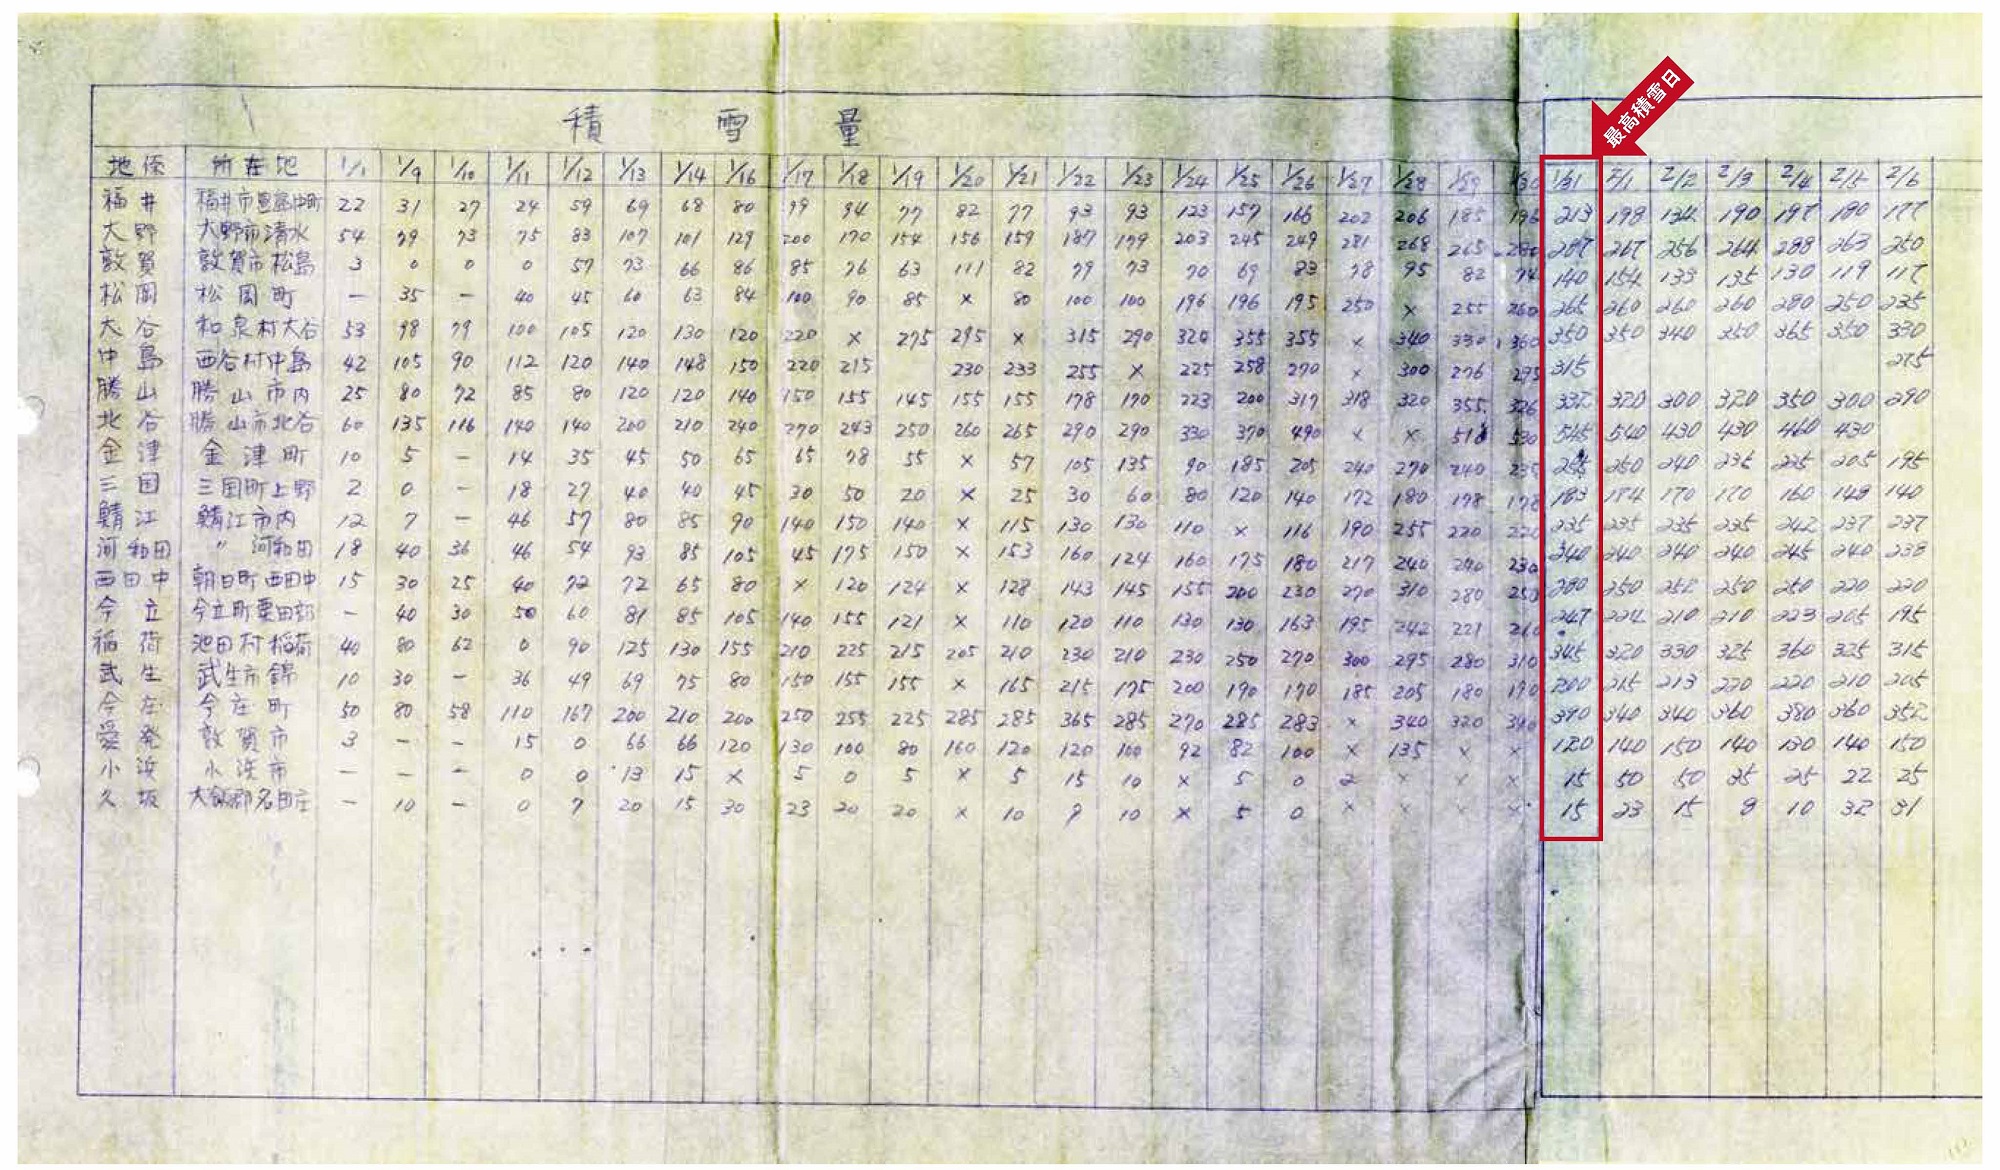 最高積雪日
積雪量
地係 所在地 1/1 1/9 1/10 1/11 1/12 1/13 1/14 1/16 1/17 1/18 1/19 1/20 1/21 1/22 1/23 1/24 1/25 1/26 1/27 1/28 1/29 1/30 1/31 2/1 2/2 2/3 2/4 2/5 2/6
福井 福井市豊島中町 22 31 27 24 59 69 68 80 99 94 77 82 77 93 93 123 157 166 202 206 185 196 213 198 134 190 197 180 177
大野 大野市清水 54 79 73 75 83 107 101 129 200 170 154 156 159 187 179 203 245 249 281 268 265 280 287 267 256 264 288 263 250
敦賀 敦賀市松島 3 0 0 0 57 73 66 86 85 76 63 111 82 79 73 70 69 83 78 95 82 74 140 154 133 135 130 119 117
松岡 松岡町 — 35 — 40 45 60 63 84 100 90 85 × 80 100 100 196 196 195 250 × 255 260 265 260 260 260 280 250 235
大谷 和泉村大谷 53 98 79 100 105 120 130 120 220 × 275 295 × 315 290 320 355 355 × 340 330 360 350 350 340 350 365 350 330
中島 西谷村中島 42 105 90 112 120 140 148 150 220 215 230 233 255 × 225 258 270 × 300 276 295 315 275
勝山 勝山市内 25 80 72 85 80 120 120 140 150 155 145 155 155 178 170 223 200 317 318 320 355 326 332 320 300 320 350 300 290
北谷 勝山市北谷 60 135 116 140 140 200 210 240 270 243 250 260 265 290 290 330 370 490 × × 510 530 545 540 430 430 460 430
金津 金津町 10 5 — 14 35 45 50 65 65 78 55 × 57 105 135 90 185 205 240 270 240 235 255 250 240 235 225 205 195
三国 三国町上野 2 0 — 18 27 40 40 45 30 50 20 × 25 30 60 80 120 140 172 180 178 178 183 184 170 170 160 148 140
鯖江 鯖江市内 12 7 — 46 57 80 85 90 140 150 140 × 115 130 130 110 × 116 190 255 220 220 235 235 235 235 242 237 237
河和田 〃 河和田 18 40 36 46 54 93 85 105 45 175 150 × 153 160 124 160 175 180 217 240 240 230 240 240 240 240 245 240 238
西田中 朝日町西田中 15 30 25 40 72 72 65 80 × 120 124 × 128 143 145 155 200 230 270 310 280 250 280 250 252 250 250 220 220
今立 今立町粟田部 — 40 30 50 60 81 85 105 140 155 121 × 110 120 110 130 130 163 195 242 221 210 247 224 210 210 223 205 195
稲荷 池田村稲荷 40 80 62 0 90 125 130 155 210 225 215 205 210 230 210 230 250 270 300 295 280 310 345 320 330 325 360 325 315
武生 武生市錦 10 30 — 36 49 69 75 80 150 155 155 × 165 215 175 200 190 170 185 205 180 170 200 215 213 220 220 210 205
今庄 今庄町 50 80 58 110 167 200 210 200 250 255 225 285 285 365 285 270 285 283 × 340 320 390 340 340 360 380 360 352
愛発 敦賀市 3 — — 15 0 66 66 120 130 100 80 160 120 120 100 92 82 100 × 135 × × 120 140 150 140 130 140 150
小浜 小浜市 — — — 0 0 13 15 × 5 0 5 × 5 15 10 × 5 0 2 × × × 15 50 50 35 25 22 25
久坂 大飯郡名田庄 — 10 — 0 7 20 15 30 23 20 20 × 10 9 10 × 5 0 × × × × 15 23 15 8 10 32 31